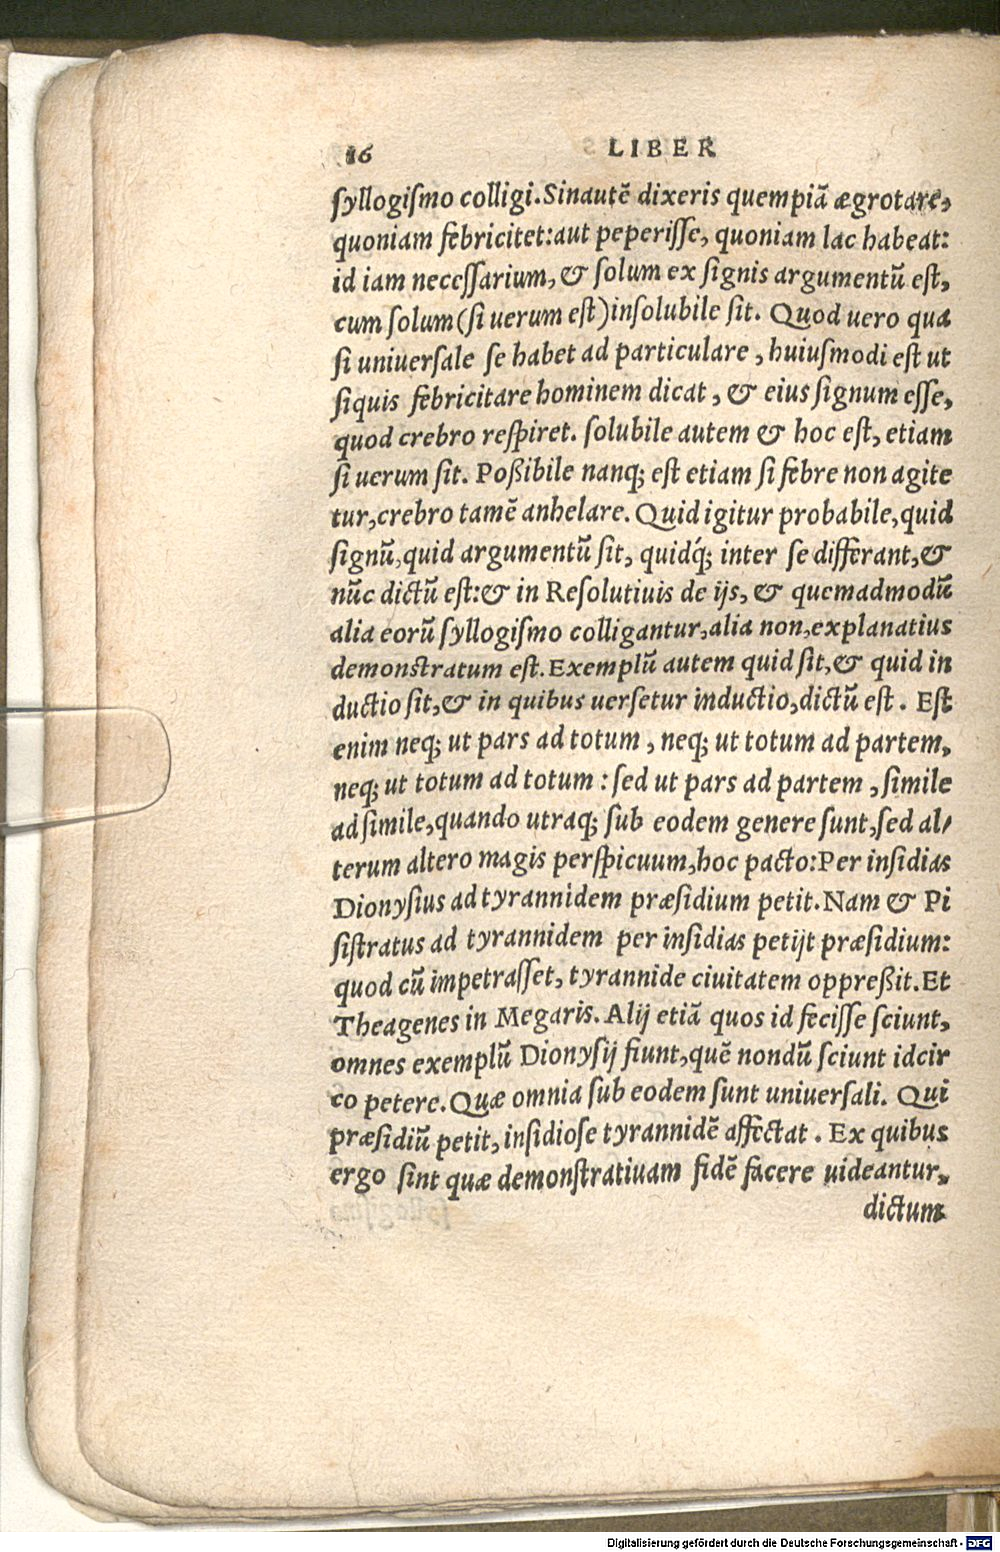 16 LIBER
syllogiſmo colligi. Sinautẽ dixeris quempiã ægrotare,
quoniam febricitet: aut peperiſſe, quoniam lac habeat:
id iam neceſſarium, & ſolum ex ſignis argumentũ eſt,
cum ſolum (ſi uerum eſt) inſolubile ſit. Quod uero qua
ſi uniuerſale ſe habet ad particulare, huiuſmodi eſt ut
ſiquis febricitare hominem dicat, & eius ſignum eſſe,
quod crebro reſpiret. ſolubile autem & hoc eſt, etiam
ſi uerum ſit. Poßibile nanq; eſt etiam ſi febre non agite
tur, crebro tamẽ anhelare. Quid igitur probabile, quid
ſignũ, quid argumentũ ſit, quidq́; inter ſe differant, &
nũc dictũ eſt: & in Reſolutiuis de ijs, & quemadmodũ
alia eorũ ſyllogiſmo colligantur, alia non, explanatius
demonſtratum eſt. Exemplũ autem quid ſit, & quid in
ductio ſit, & in quibus uerſetur inductio, dictũ eſt. Eſt
enim neq; ut pars ad totum, neq; ut totum ad partem,
neq; ut totum ad totum: ſed ut pars ad partem, ſimile
ad ſimile, quando utraq; ſub eodem genere ſunt, ſed al/
terum altero magis perſpicuum, hoc pacto: Per inſidias
Dionyſius ad tyrannidem præſidium petit. Nam & Pi
ſiſtratus ad tyrannidem per inſidias petijt præſidium:
quod cũ impetraſſet, tyrannide ciuitatem oppreßit. Et
Theagenes in Megaris. Alij etiã quos id feciſſe ſciunt,
omnes exemplũ Dionyſij fiunt, quẽ nondũ ſciunt idcir
co petere. Quæ omnia ſub eodem ſunt uniuerſali. Qui
præſidiũ petit, inſidioſe tyrannidẽ affectat. Ex quibus
ergo ſint quæ demonſtratiuam fidẽ facere uideantur,
dictum
Digitalisierung gefördert durch die Deutsche Forschungsgemeinschaft - DFG